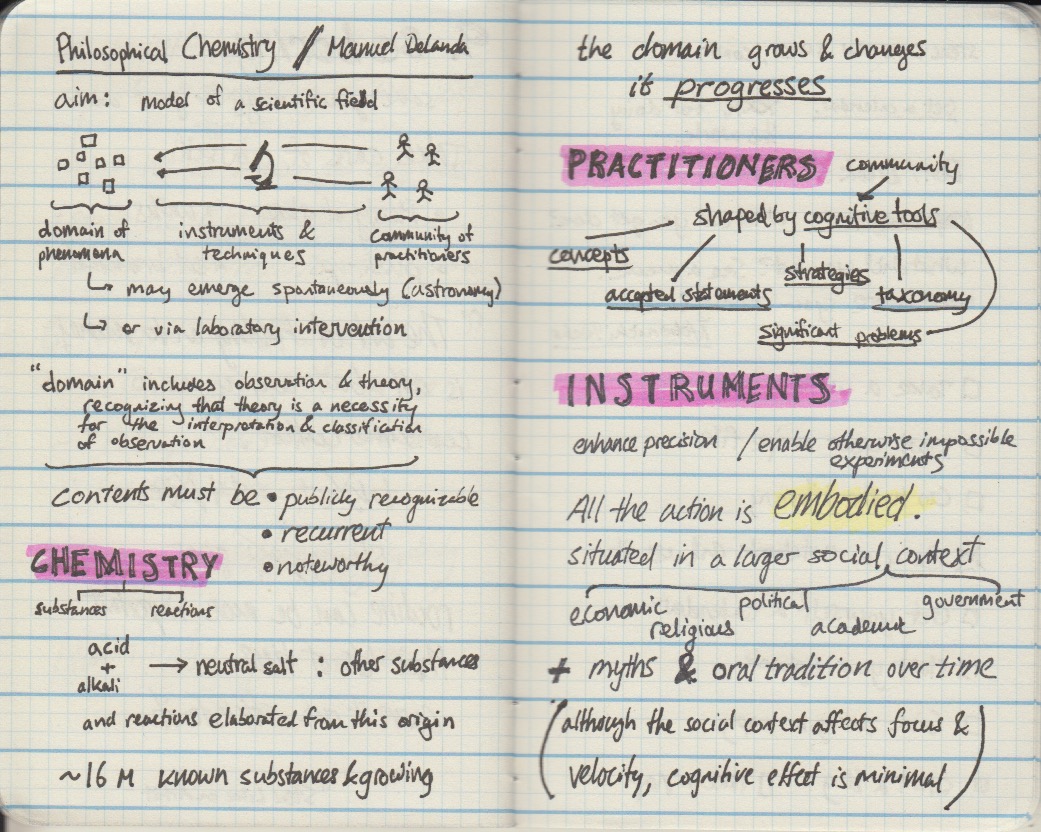 Philosophical Chemistry / Manuel Delanda
aim: model of a scientific field
domain of phenomena
instruments & techniques
community of practitioners
may emerge spontaneously (astronomy)
or via laboratory intervention
"domain" includes observation & theory,
recognizing that theory is a necessity
for the interpretation & classification
of observation
contents must be • publicly recognizable
• recurrent
• noteworthy
CHEMISTRY
substances reactions
acid
+
alkali
→ neutral salt : other substances
and reactions elaborated from this origin
~16 M known substances & growing
the domain grows & changes
it progresses
PRACTITIONERS
community
shaped by cognitive tools
concepts
accepted statements
strategies
taxonomy
significant problems
INSTRUMENTS
enhance precision / enable otherwise impossible
experiments
All the action is embodied.
situated in a larger social context
economic
religious
political
academic
government
+ myths & oral tradition over time
(although the social context affects focus &
velocity, cognitive effect is minimal)